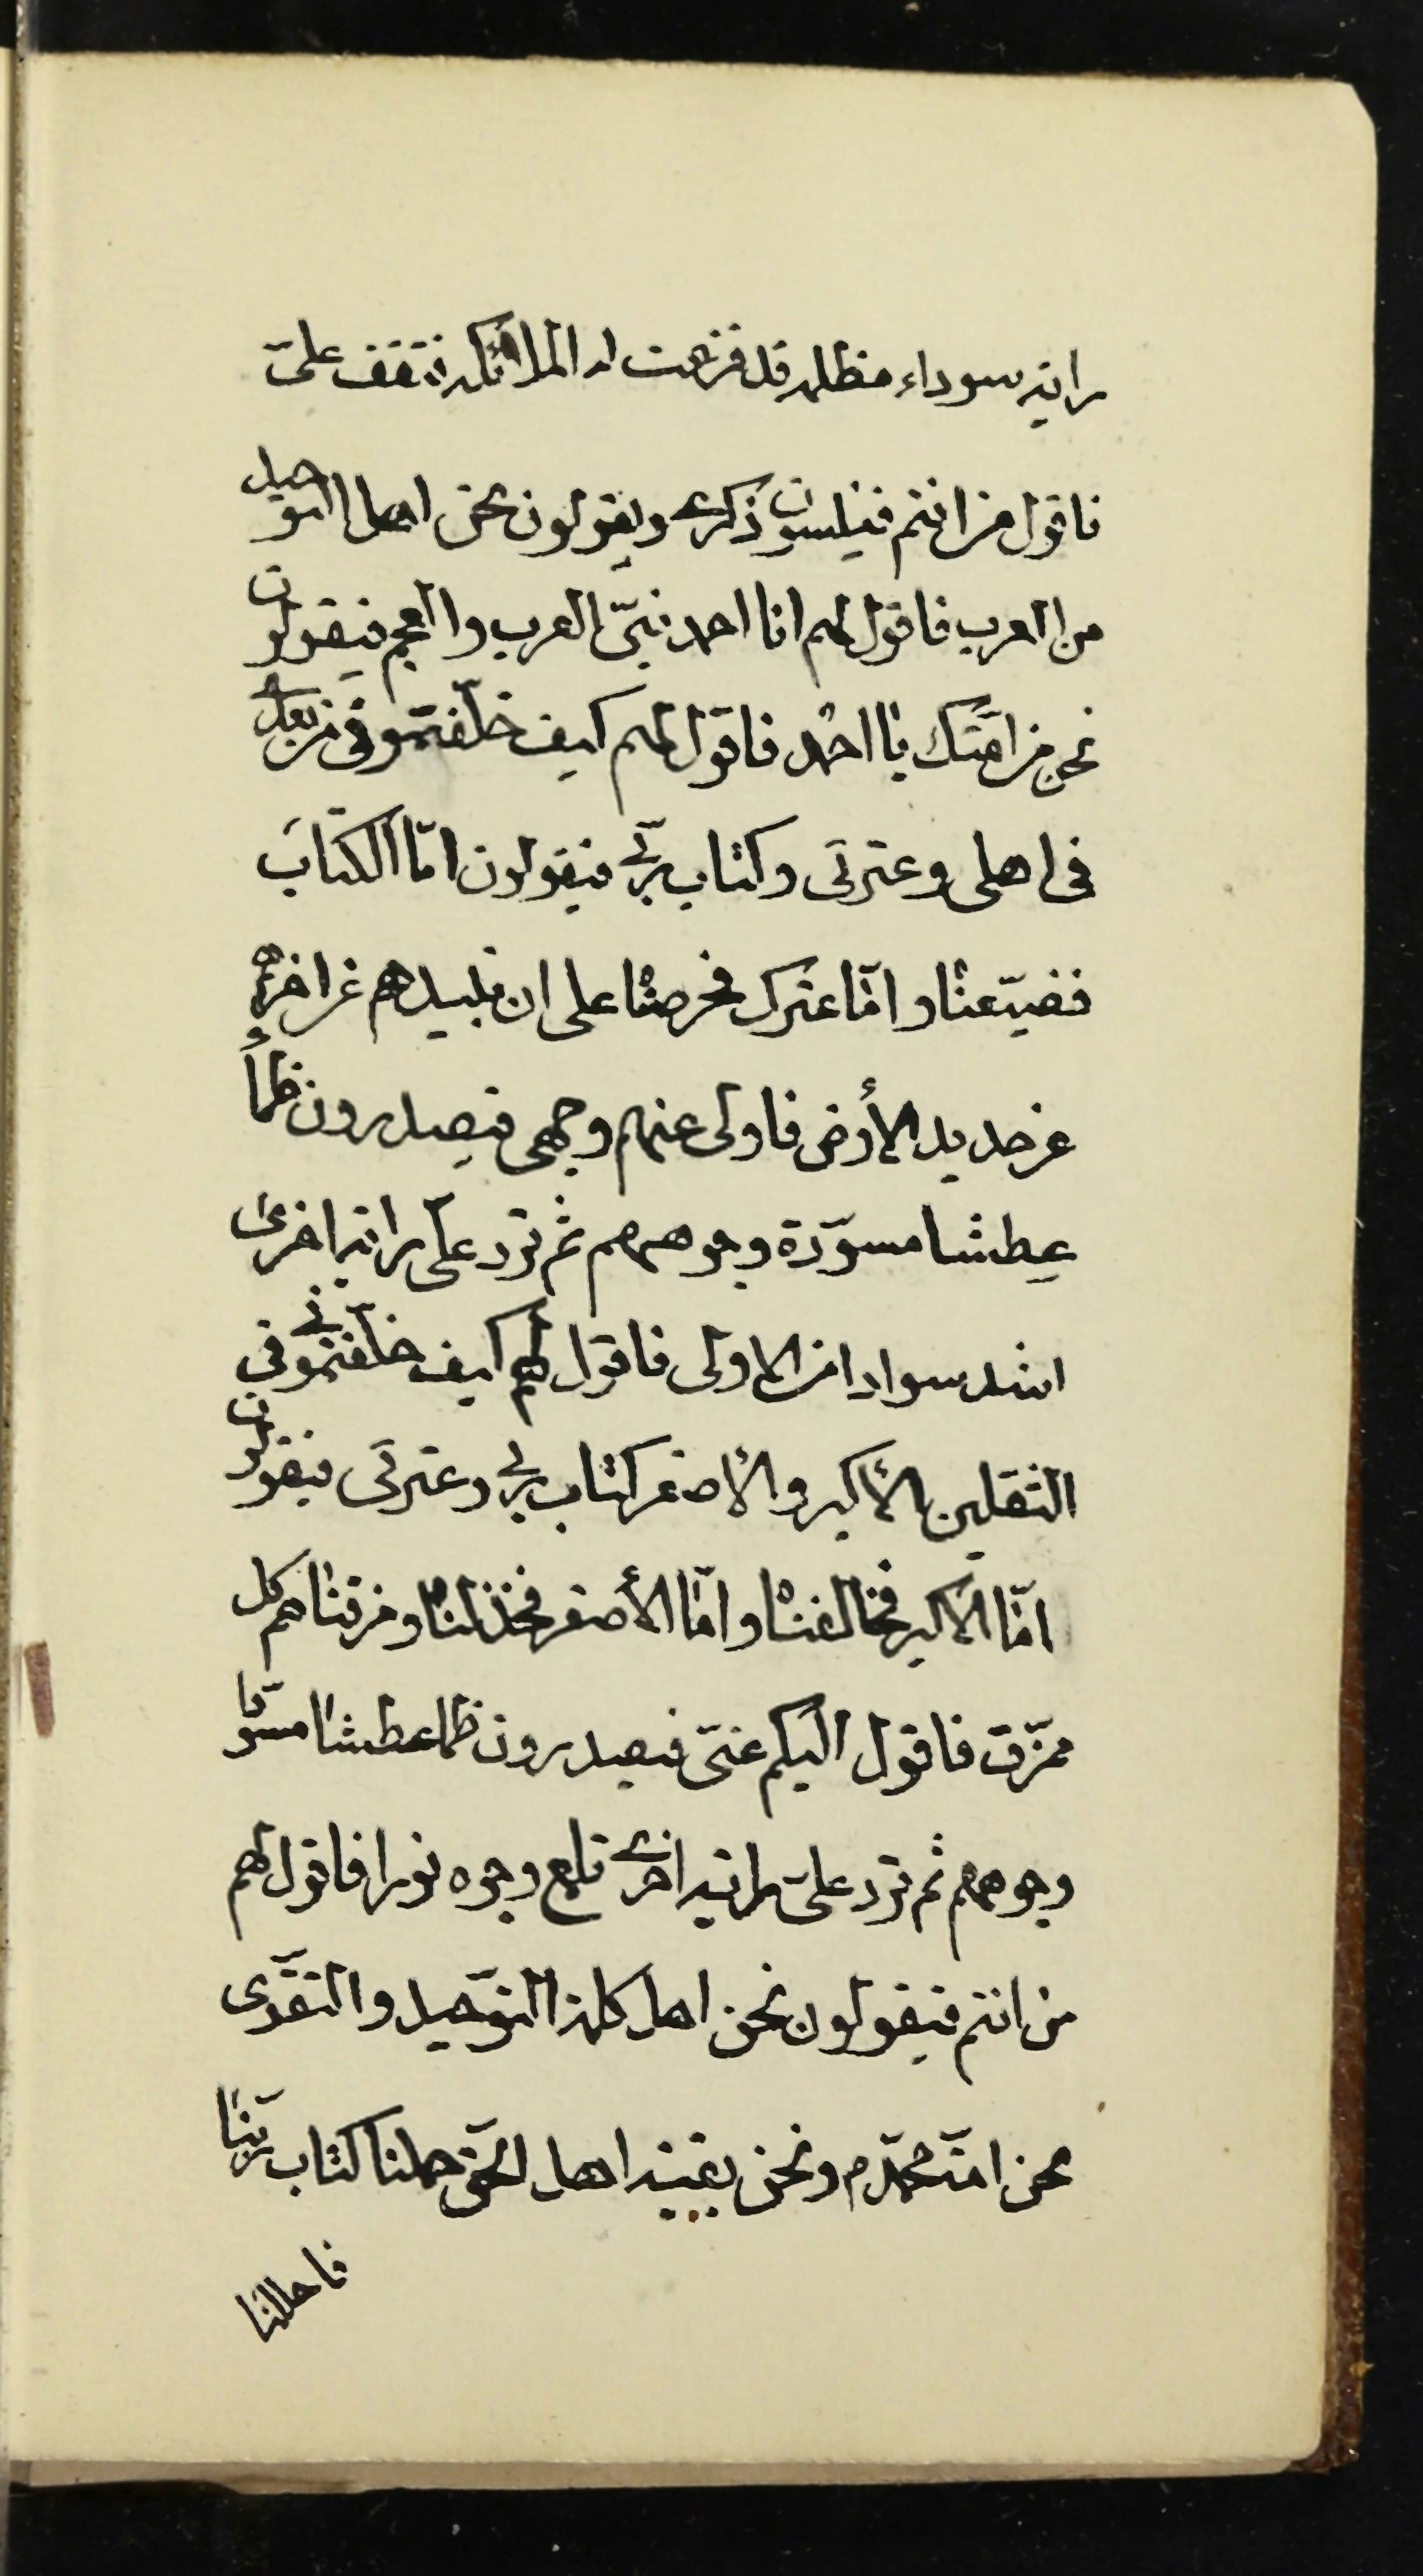 راية سوداء مظلمة قد فزعت له الملائكة فتقف علىّ
فاقول من انتم فينسون ذكرى ويقولون نحن اهل التوحيد
من العرب فاقول لهم انا احمد نبىّ العرب والعجم فيقولون
نحن من امّتك يا احمد فاقول لهم كيف خلّفتمونى من بعدى
فى اهلى وعترتى وكتاب ربّى فيقولون امّا الكتاب
فضيّعنا وامّا عترتك فحرصنا على ان نبيدهم عن اخرهم
عن جديد الأرض فاولى عنهم وجهى فيصدرون ظمأ
عطشا مسوّدة وجوههم ثم ترد علىّ راية اخرى
اشد سوادا من الاولى فاقول لهم كيف خلّفتمونى فى
الثقلين الأكبر والأصغر كتاب ربى وعترتى فيقولون
امّا الأكبر فخالفنا وامّا الأصغر فخذلنا ومزقناهم كل
ممزّق فاقول اليكم عنّى فيصدرون ظما عطشا مسوّدا
وجوههم ثم ترد علىّ راية اخرى تلمع وجوه نورا فاقول لهم
من انتم فيقولون نحن اهل كلمة التوحيد والتقوى
نحن امّة محمّد م ونحن بقية اهل الحقّ حملنا كتاب ربّنا
فاحللنا